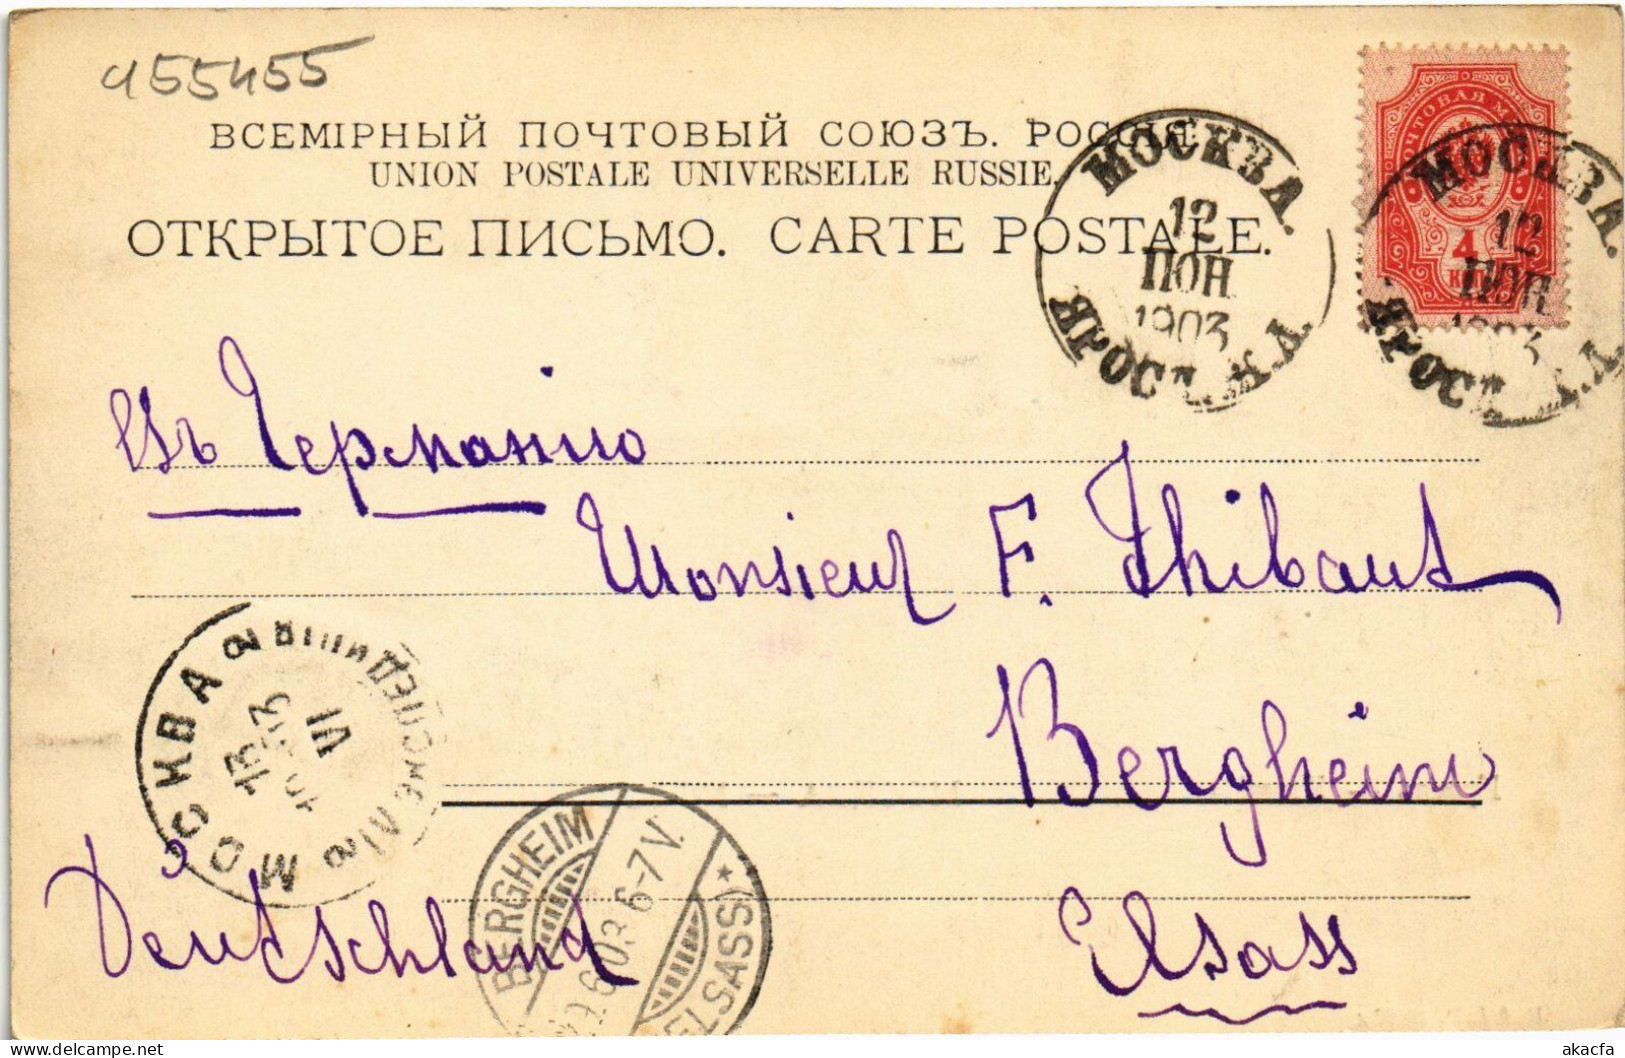 455455
ВСЕМІРНЫЙ ПОЧТОВЫЙ СОЮЗЪ. РОССІЯ.
UNION POSTALE UNIVERSELLE RUSSIE.
ОТКРЫТОЕ ПИСЬМО. CARTE POSTALE.
МОСКВА.
12
ПОН
1903
ЯРОС
ПОЧТОВАЯ
4
МОСКВА.
12
Въ Германію
Monsieur F. Thibaut
Bergheim
Elsass
Deutschland
МОСКВА
13
VI
BERGHEIM
6.03. 6-7V.
ELSASS
akacfa